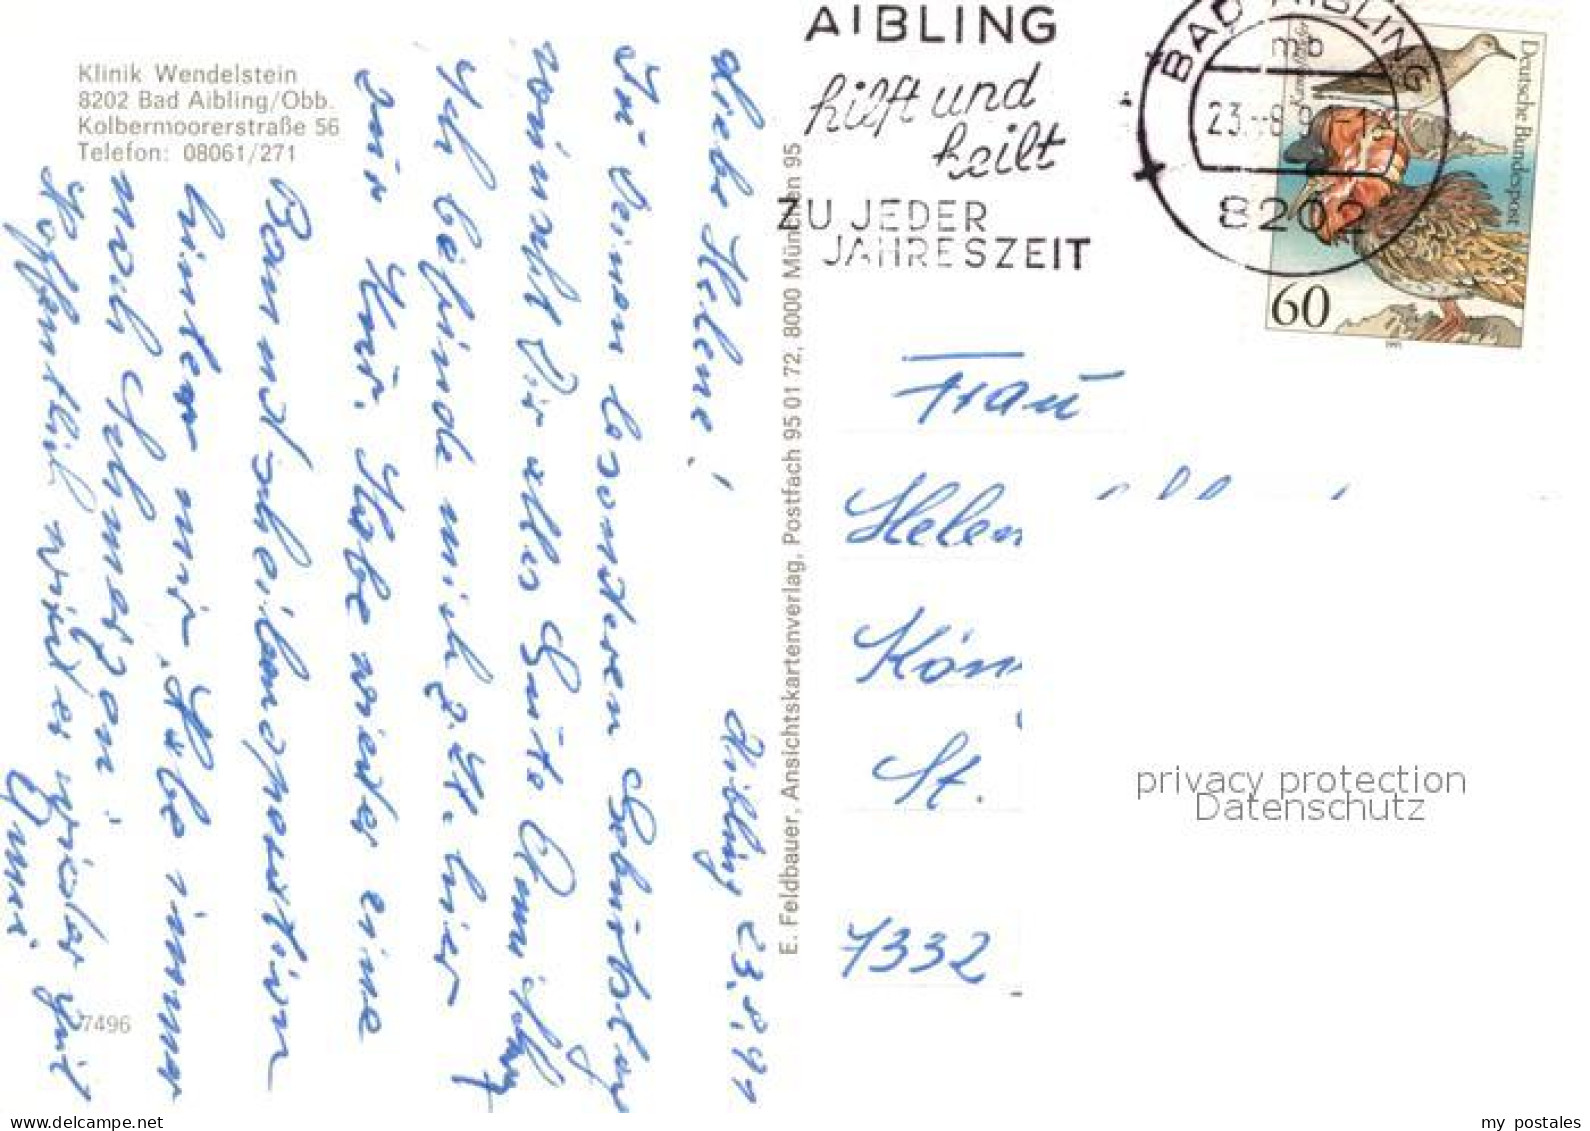 Klinik Wendelstein
8202 Bad Aibling/Obb.
Kolbermoorerstraße 56
Telefon: 08061/271
Aibling 23.8.91
Liebe Helene!
Zu Deinem besonderen Geburtstag
wünscht Dir alles Gute Anni. Ich
Ich befinde mich z. Zt. hier
zur Kur. Habe wieder eine
Bandscheibenoperation
hinter mir. Habe immer
noch Schmerzen!
Hoffentlich wird es wieder gut
Anni
7496
E. Feldbauer, Ansichtskartenverlag, Postfach 95 01 72, 8000 München 95
AIBLING
hilft und
heilt
ZU JEDER
JAHRESZEIT
BAD AIBLING
mb
23.-8.9
8202
Deutsche Bundespost
Kampfläufer
60
Frau
Helen
Kön
St.
7332
privacy protection
Datenschutz
my postales